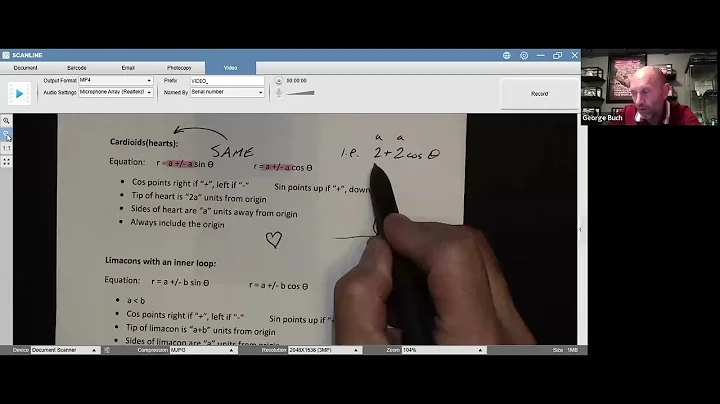 SCANLINE
Document Barcode Email Photocopy Video
Output Format MP4 Prefix VIDEO_ 00:00:00
Audio Settings Microphone Array (Realtek(I Named By Serial number Record
George Buch
1:1
Cardioids(hearts):
SAME
a a
i.e. 2+2cos θ
Equation: r = a +/- a sin Θ r = a +/- a cos Θ
• Cos points right if "+", left if "-" Sin points up if "+", down
• Tip of heart is "2a" units from origin
• Sides of heart are "a" units away from origin
• Always include the origin
Limacons with an inner loop:
Equation: r = a +/- b sin Θ r = a +/- b cos Θ
• a < b
• Cos points right if "+", left if "-" Sin points up if "+
• Tip of limacon is "a+b" units from origin
• Sides of limacon are "a" units from origin
Device Document Scanner Compression MJPG Resolution 2048X1536 (3MP) Zoom 104% Size 1MB